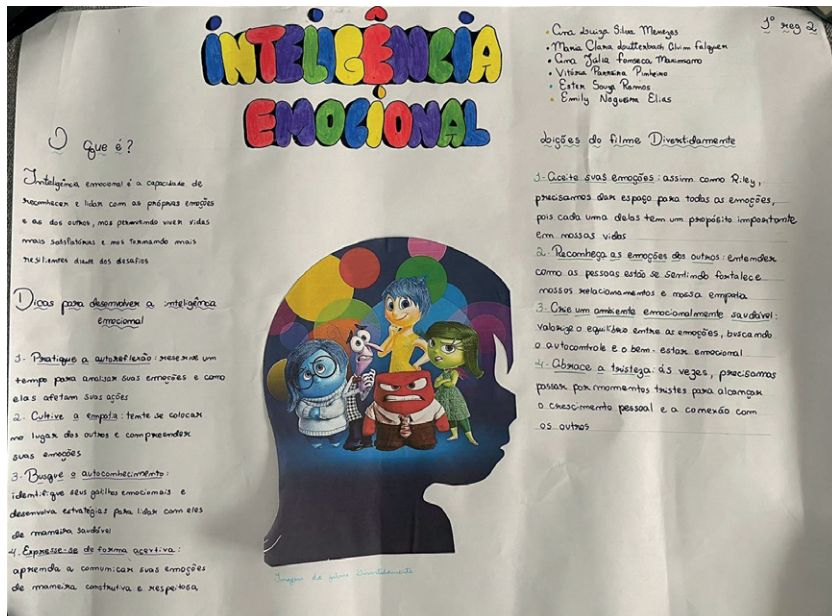 INTELIGÊNCIA
EMOCIONAL
1º reg 2
Ana Luiza Silva Menezes
Maria Clara Louttenbach Alvim Falguer
Ana Júlia Fonseca Marimiano
Vitória Parreira Pinheiro
Ester Souza Ramos
Emily Nogueira Elias
O que é?
Inteligência emocional é a capacidade de
reconhecer e lidar com as próprias emoções
e as dos outros, nos permitindo viver vidas
mais satisfatórias e nos tornando mais
resilientes diante dos desafios
Dicas para desenvolver a inteligência
emocional
1- Pratique a autoreflexão: reserve um
tempo para analisar suas emoções e como
elas afetam suas ações
2. Cultive a empatia: tente se colocar
no lugar dos outros e compreender
suas emoções
3- Busque o autoconhecimento:
identifique seus gatilhos emocionais e
desenvolva estratégias para lidar com eles
de maneira saudável
4. Expresse-se de forma acertiva:
aprenda a comunicar suas emoções
de maneira construtiva e respeitosa
Lições do filme Divertidamente
1- Aceite suas emoções: assim como Riley,
precisamos dar espaço para todas as emoções,
pois cada uma delas tem um propósito importante
em nossas vidas
2- Reconheça as emoções dos outros: entender
como as pessoas estão se sentindo fortalece
nossos relacionamentos e nossa empatia
3- Crie um ambiente emocionalmente saudável:
valorize o equilíbrio entre as emoções, buscando
o autocontrole e o bem-estar emocional
4- Abrace a tristeza: ás vezes, precisamos
passar por momentos tristes para alcançar
o crescimento pessoal e a conexão com
os outros
Imagem do filme Divertidamente